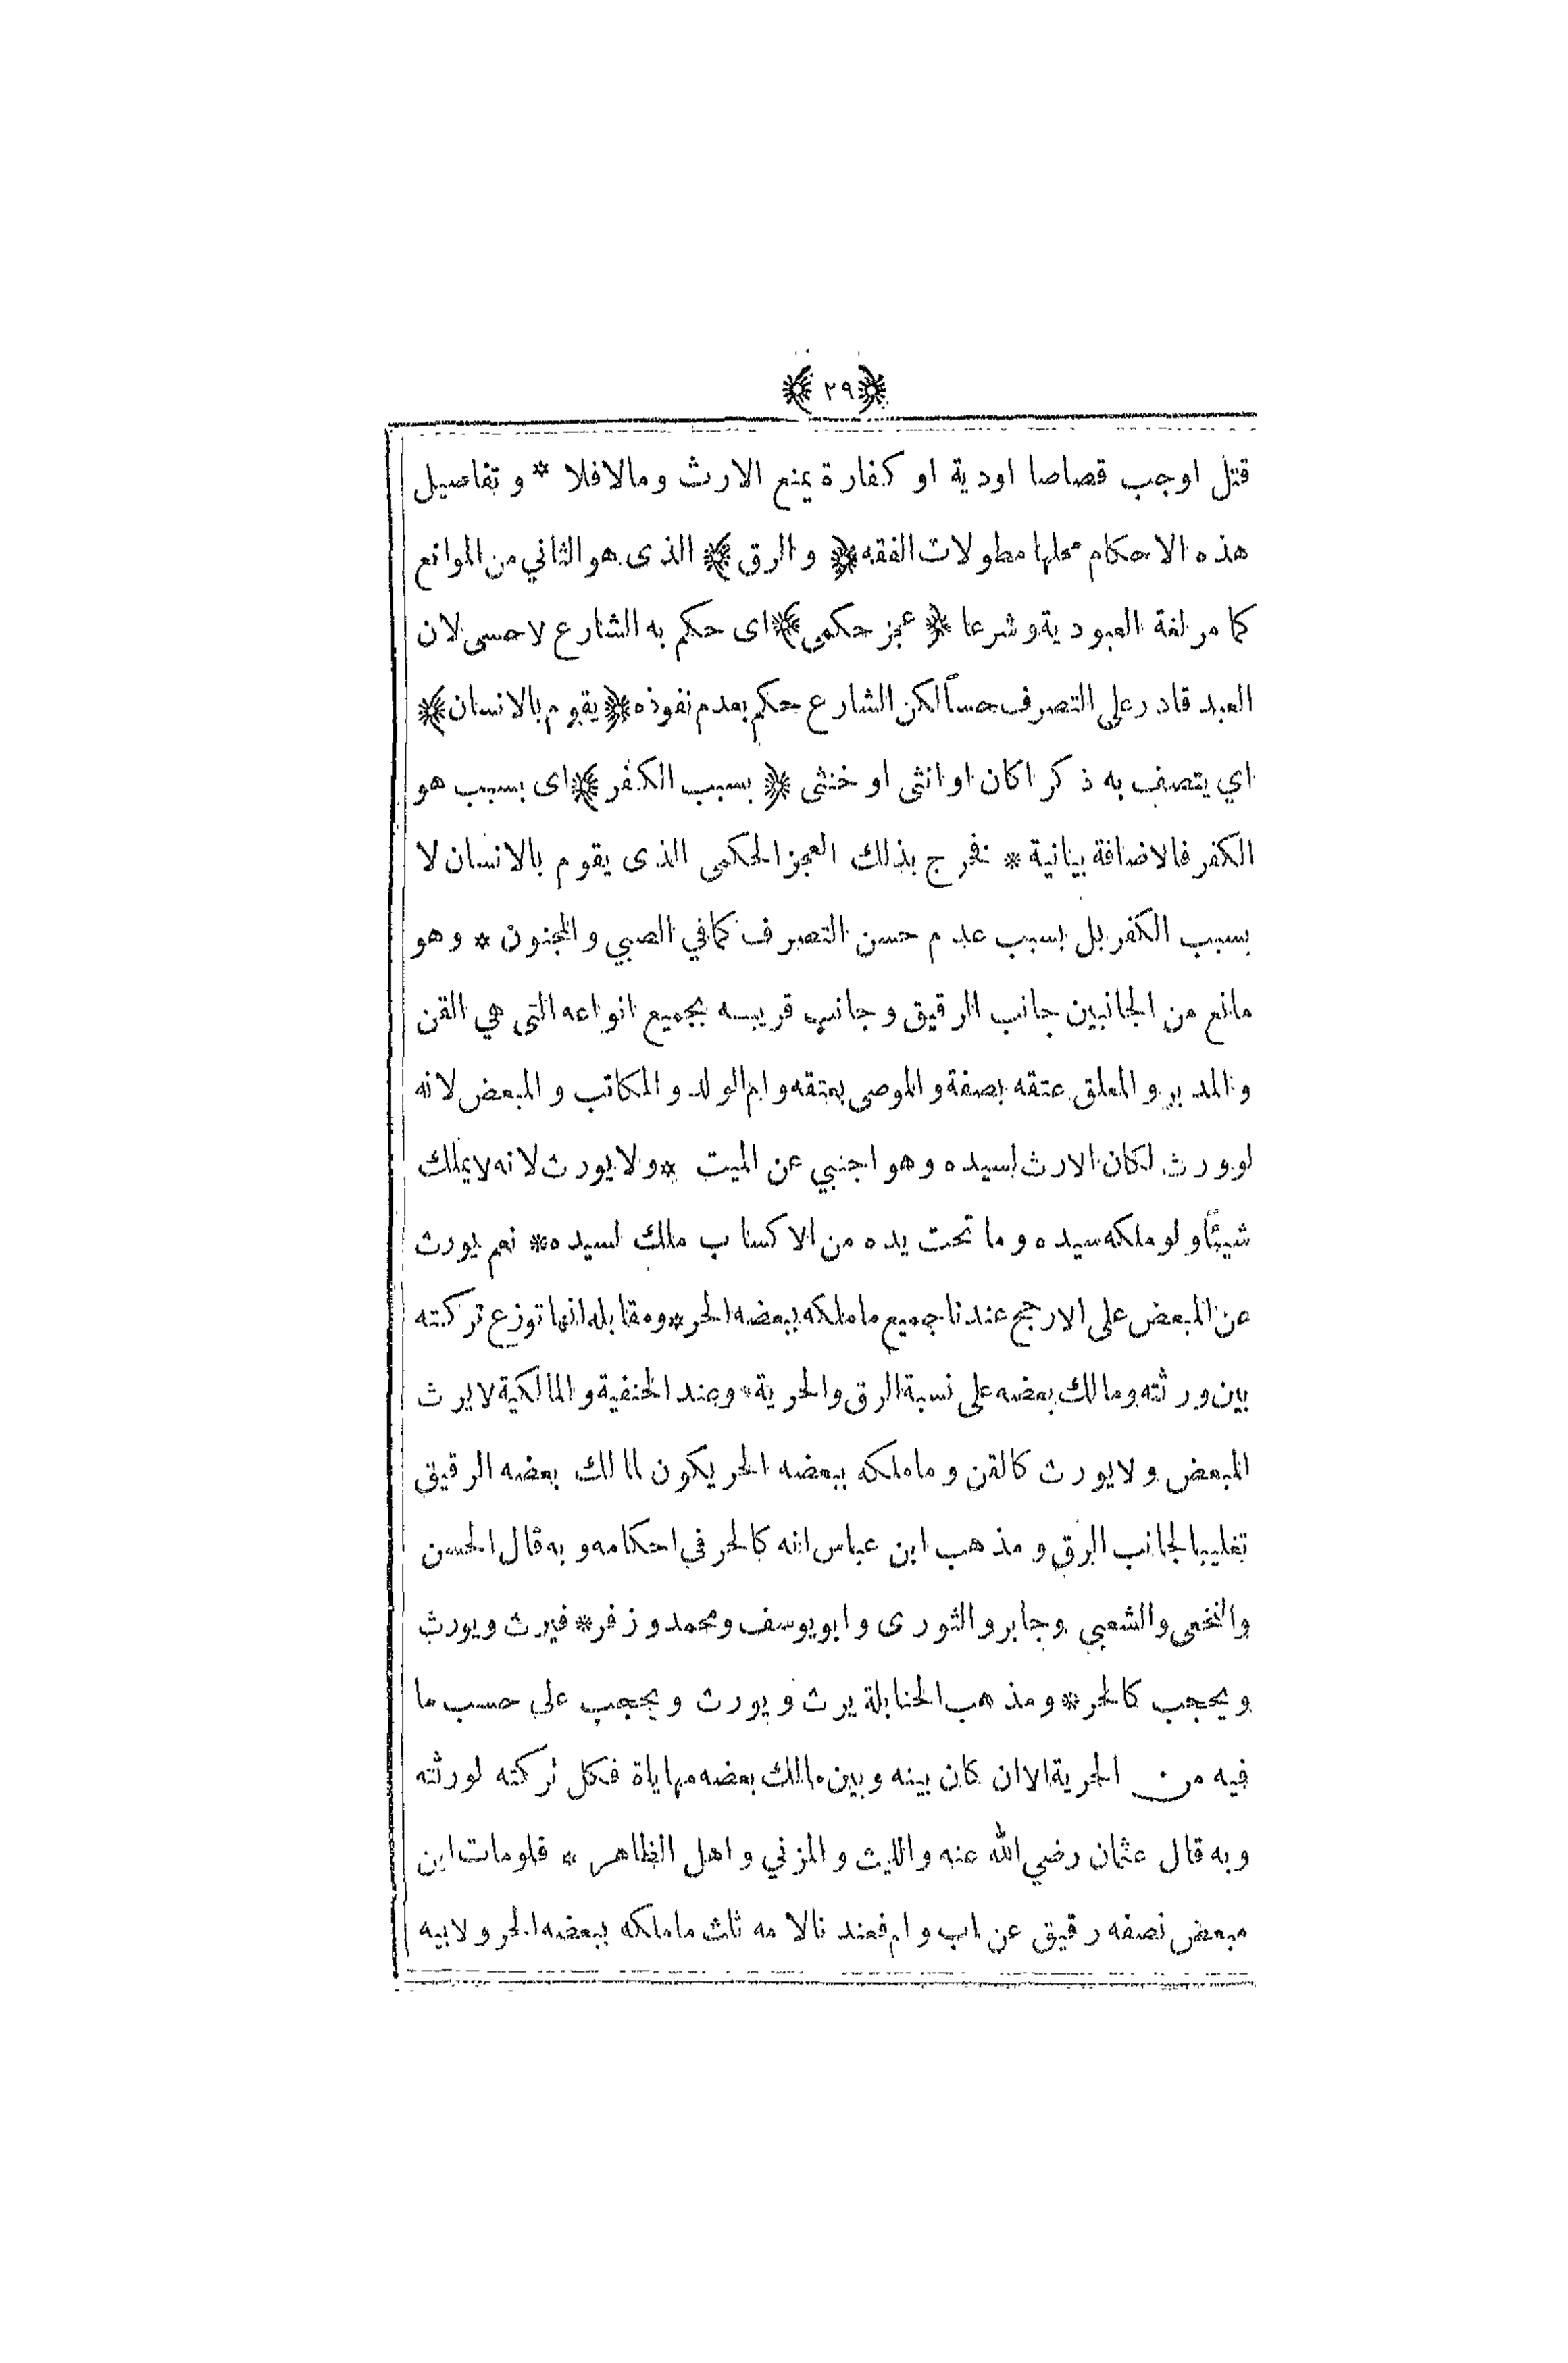 ﴿ ٢٩ ﴾
قتل اوجب قصاصا اودية او كفارة يمنع الارث ومالافلا * و تفاصيل
هذه الاحكام محلها مطولات الفقه ﴿ و الرق ﴾ الذى هو الثاني من الموانع
كما مر لغة العبودية وشرعا ﴿ عجز حكمى ﴾ اى حكم به الشارع لاحسى لان
العبد قادر على التصرف حساً لكن الشارع حكم بعدم نفوذه ﴿ يقوم بالانسان ﴾
اي يتصف به ذكرا كان او انثى او خنثى ﴿ بسبب الكفر ﴾ اى بسبب هو
الكفر فالاضافة بيانية * فخرج بذلك العجز الحكمى الذى يقوم بالانسان لا
بسبب الكفر بل بسبب عدم حسن التصرف كما في الصبي و المجنون * وهو
مانع من الجانبين جانب الرقيق و جانب قريبه بجميع انواعه التى هي القن
و المدبر و المعلق عتقه بصفة و الموصى بعتقه و ام الولد و المكاتب و المبعض لانه
لو ورث لكان الارث لسيده وهو اجنبي عن الميت * ولا يورث لانه لايملك
شيئاً و لو ملكه سيده و ما تحت يده من الاكساب ملك لسيده * نعم يورث
عن المبعض على الارجح عندنا جميع ماملكه ببعضه الحر * ومقابله انها توزع تركته
بين ورثته ومالك بعضه على نسبة الرق والحرية * وعند الحنفية و المالكية لايرث
المبعض و لايورث كالقن و ماملكه ببعضه الحر يكون لمالك بعضه الرقيق
تغليبا لجانب الرق و مذهب ابن عباس انه كالحر في احكامه و به قال الحسن
والنخعى والشعبي وجابر والثورى و ابويوسف ومحمد و زفر * فيرث ويورث
و يحجب كالحر * و مذهب الحنابلة يرث و يورث و يحجب على حسب ما
فيه من الحرية الا ان كان بينه و بين مالك بعضه مهاياة فكل تركته لورثته
وبه قال عثمان رضي الله عنه والليث و المزني و اهل الظاهر * فلومات ابن
مبعض نصفه رقيق عن اب و ام فعندنا لامه ثلث ماملكه ببعضه الحر و لابيه